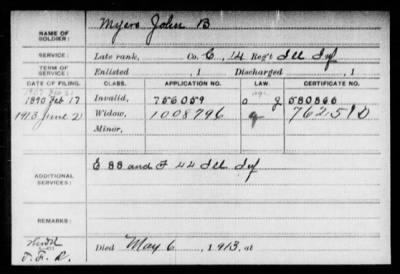 NAME OF SOLDIER: Myers John B
SERVICE: Late rank, Co. E, 14 Reg't Ill Inf
TERM OF SERVICE: Enlisted , 1 Discharged , 1
DATE OF FILING. CLASS. APPLICATION NO. LAW. CERTIFICATE NO.
1890 Feb 17 Invalid, 756059 g 580866
1913 June 2 Widow, 1008796 762.512
Minor,
ADDITIONAL SERVICES: E 88 and F 44 Ill Inf
REMARKS:
Died May 6, 1913, at